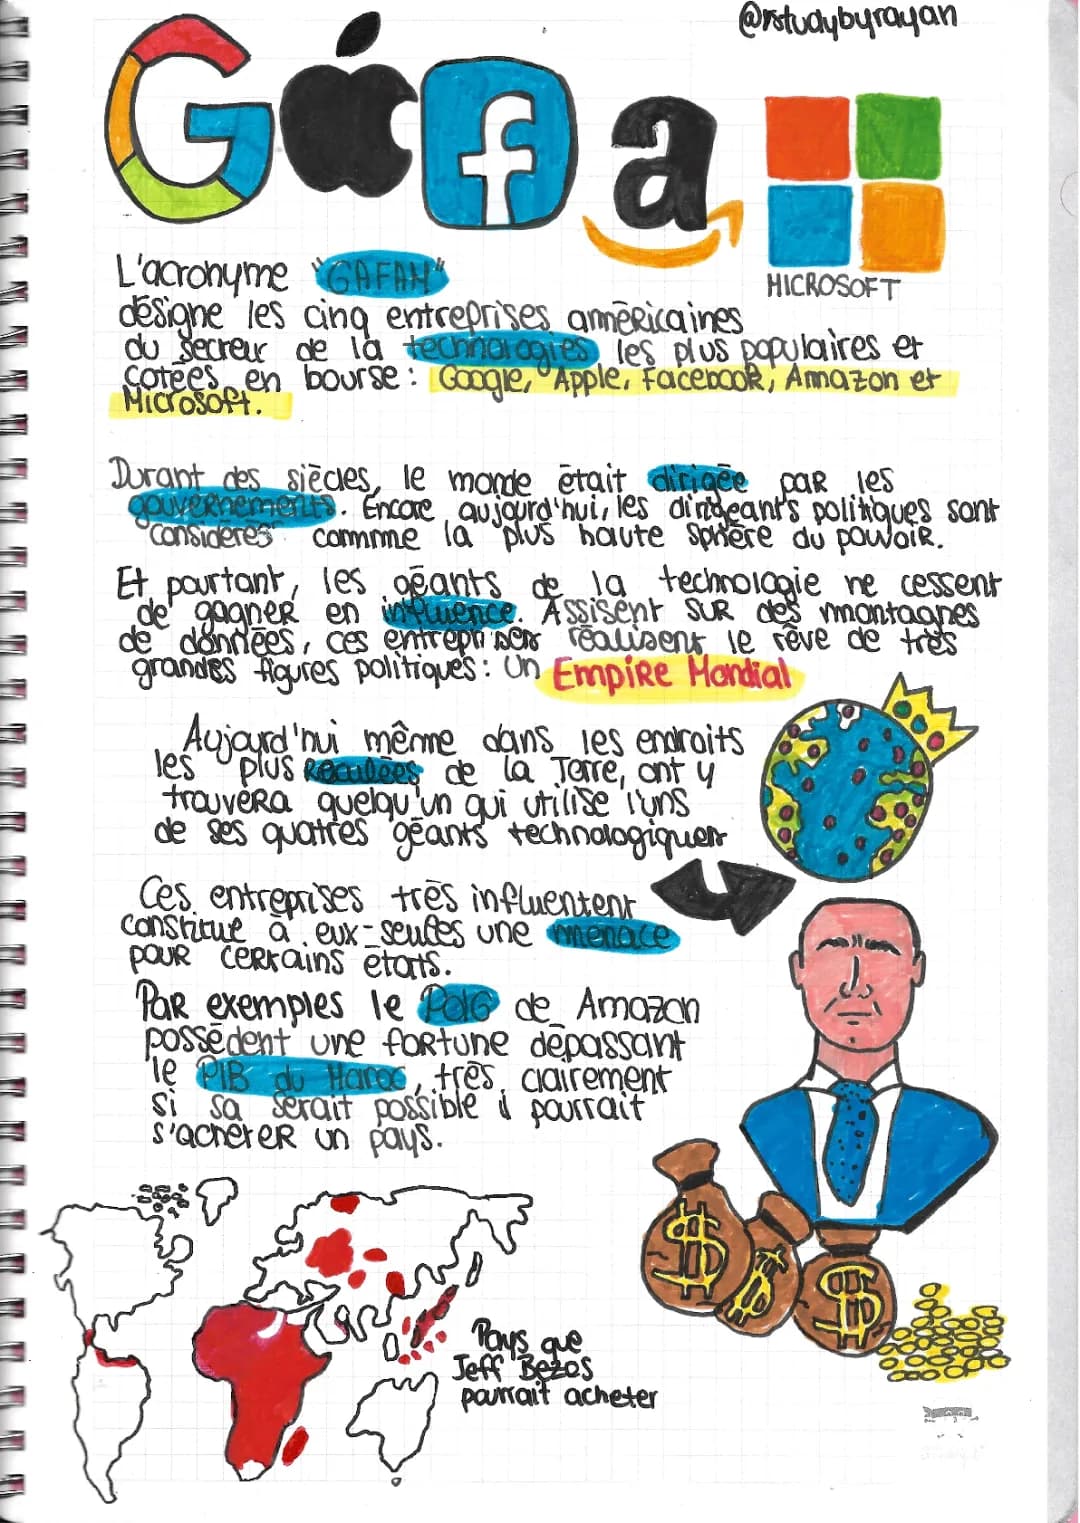 @rstudybyrayan
MICROSOFT
L'acronyme "GAFAM"
désigne les cinq entreprises américaines
du secteur de la technologies les plus populaires et
cotées en bourse: Google, Apple, Facebook, Amazon et
Microsoft.
Durant des siècles, le monde était dirigée par les
gouvernements. Encore aujourd'hui, les dirigeants politiques sont
considérés commme la plus haute sphère du pouvoir.
Et pourtant, les géants de la technologie ne cessent
de gagner en influence. Assisent sur des montagnes
de données, ces entreprises réalisent le rêve de très
grandes figures politiques: un Empire Mondial
Aujourd'hui même dans les endroits
les plus reculées de la Terre, ont y
trouvera quelqu'un qui utilise l'uns
de ses quatres géants technologiques
Ces entreprises très influentent
constitue à eux-seules une menace
pour certains états.
Par exemples le PDG de Amazon
possédent une fortune dépassant
le PIB du Maroc, très clairement
si sa serait possible il pourrait
s'acheter un pays.
Pays que
Jeff Bezos
pourrait acheter